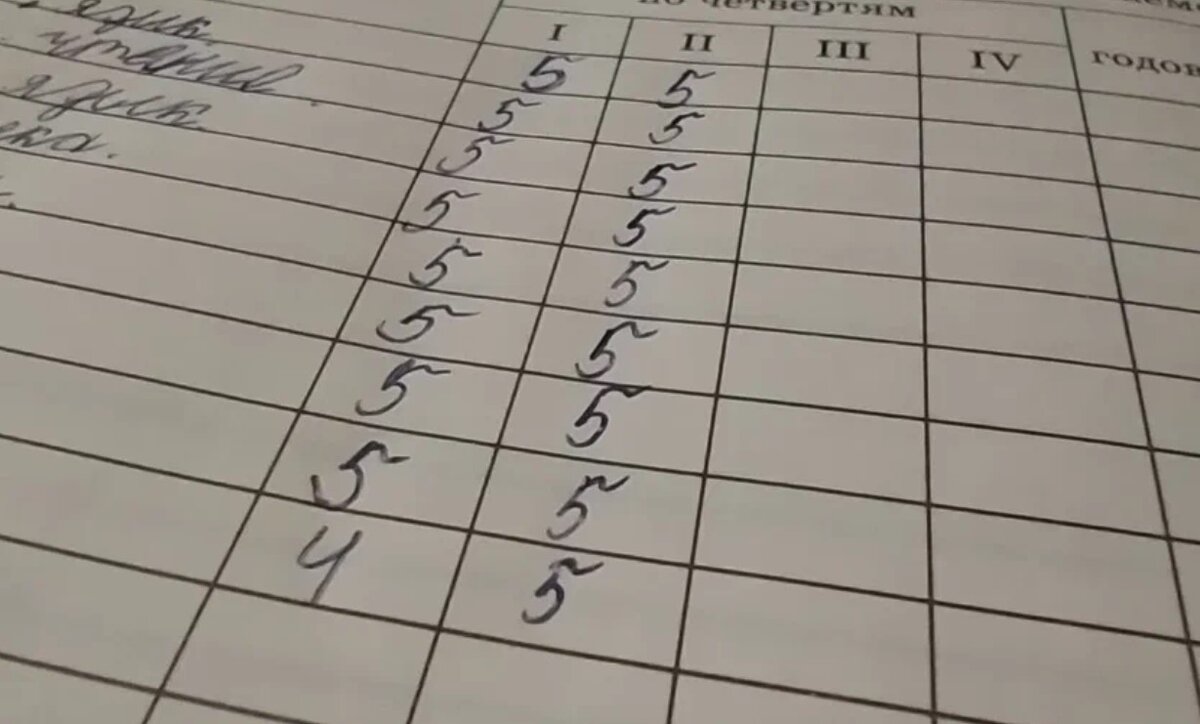 по четвертям
I II III IV годов
язык 5 5
чтение 5 5
язык 5 5
5 5
5 5
5 5
5 5
5 5
4 5